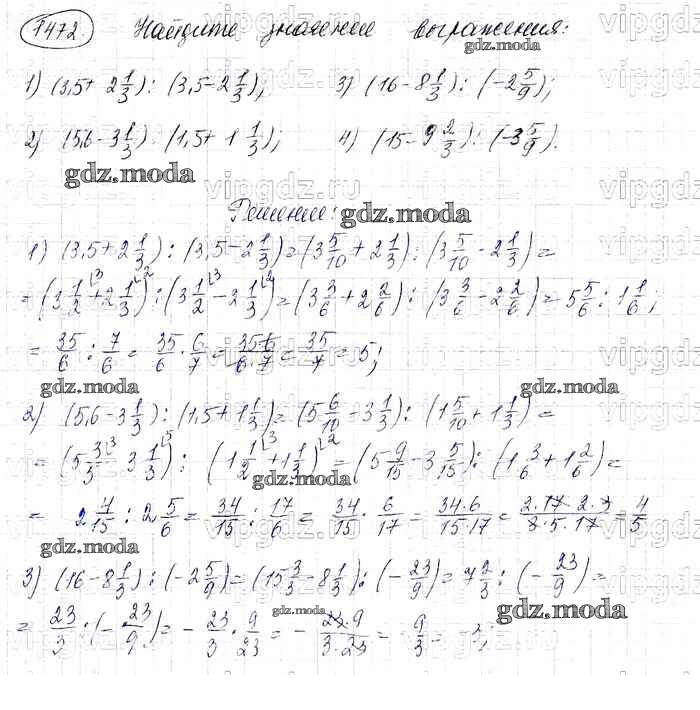 1472. Найдите значение выражения:
gdz.moda
1) (3,5 + 2 1/3) : (3,5 - 2 1/3);   3) (16 - 8 1/3) : (-2 5/9);
2) (5,6 - 3 1/3) : (1,5 + 1 1/3);   4) (15 - 9 2/3) : (-3 5/9).
gdz.moda
vipgdz.ru
Решение:
gdz.moda
1) (3,5 + 2 1/3) : (3,5 - 2 1/3) = (3 5/10 + 2 1/3) : (3 5/10 - 2 1/3) =
= (3 1/2 + 2 1/3) : (3 1/2 - 2 1/3) = (3 3/6 + 2 2/6) : (3 3/6 - 2 2/6) = 5 5/6 : 1 1/6;
= 35/6 : 7/6 = 35/6 · 6/7 = 35·6/6·7 = 35/7 = 5;
gdz.moda
gdz.moda
2) (5,6 - 3 1/3) : (1,5 + 1 1/3) = (5 6/10 - 3 1/3) : (1 5/10 + 1 1/3) =
= (5 3/3 - 3 1/3) : (1 1/2 + 1 1/3) = (5 9/15 - 3 5/15) : (1 3/6 + 1 2/6) =
gdz.moda
= 2 4/15 : 2 5/6 = 34/15 : 17/6 = 34/15 · 6/17 = 34·6/15·17 = 2·17·2·3/3·5·17 = 4/5
gdz.moda
3) (16 - 8 1/3) : (-2 5/9) = (15 3/3 - 8 1/3) : (- 23/9) = 7 2/3 : (- 23/9) =
gdz.moda
gdz.moda
= 23/3 : (- 23/9) = - 23/3 · 9/23 = - 23·9/3·23 = - 9/3 = -3;